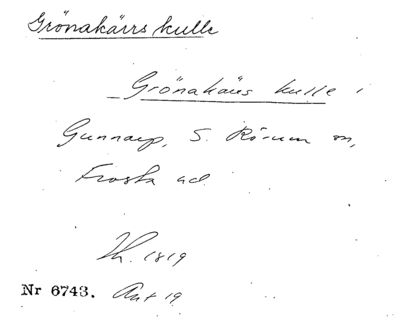 Grönakärrs kulle
Grönakärs kulle i
Gunnarp, S. Rörum sn,
Frosta hd
Th. 1819
Nr 6743. Ant 19